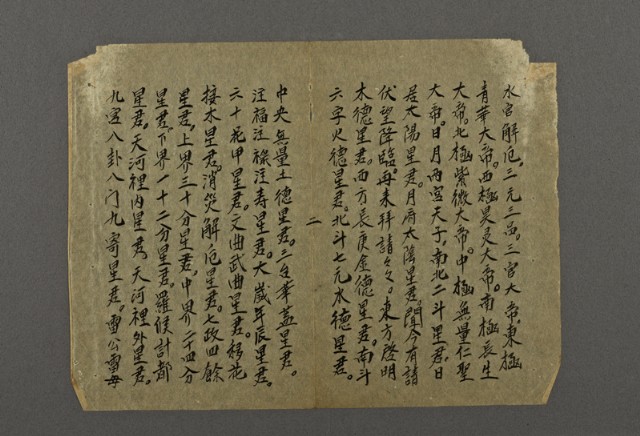 水官解厄，三元三品，三官大帝，東極
青華大帝。西極昊灵大帝。南極長生
大帝。北極紫微大帝。中極無量仁聖
大帝。日月两宫天子，南北二斗星君。日
居太陽星君。月府太陰星君。聞今有請
伏望降臨。再来拜請々々。東方啓明
木德星君。西方長庚金德星君。南斗
六字火德星君。北斗七元水德星君。
二
中央無量土德星君。三台華盖星君。
注福注祿注寿星君。大歲年辰星君。
六十花甲星君。文曲武曲星君。移花
接木星君。消災解厄星君。七政四餘
星君。上界三十分星君。中界二十四分
星君。下界一十二分星君。羅候計都
星君。天河裡内星君。天河裡外星君。
九宫八卦八门九寄星君。雷公雷母